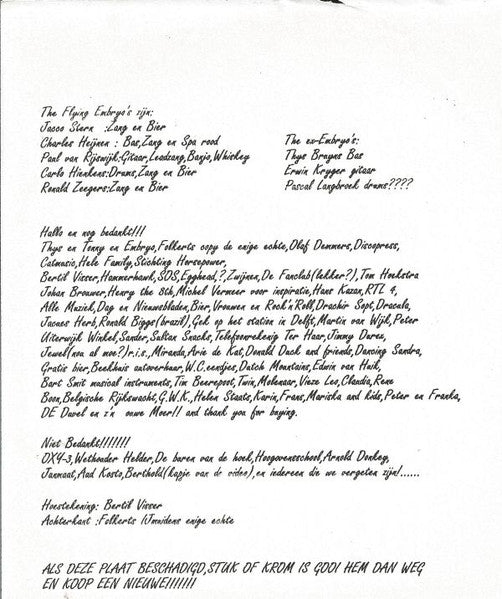 The Flying Embryo's zijn:
Jacco Stern :Zang en Bier
Charles Heijnen : Bas,Zang en Spa rood
Paul van Rijswijk:Gitaar,Leadzang,Banjo,Whiskey
Carlo Hienkens:Drums,Zang en Bier
Ronald Zeegers:Zang en Bier
The ex-Embryo's:
Thys Bruyns Bas
Erwin Kryger gitaar
Pascal Langbroek drums????
Hallo en nog bedankt!!!
Thys en Tonny en Embryo,Folkerts copy de enige echte,Olaf Demmers,Discopress,
Catmusic,Hele Family,Stichting Horsepower,
Bertil Visser,Hammerhawk,SOS,Egghead,?,Zwijnen,De Fanclub(lekker?),Tom Hoekstra
Johan Brouwer,Henry the 8th,Michel Vermeer voor inspiratie,Hans Kazan,RTL 4,
Alle Muziek,Dag en Nieuwsbladen,Bier,Vrouwen en Rock'n'Roll,Drachir Sopt,Dracula,
Jacques Herb,Ronald Biggs(brazil),Gek op het station in Delft,Martin van Wijk,Peter
Uiterwijk Winkel,Sander,Sultan Snacks,Telefoonrekenig Ter Haar,Jimmy Dureu,
Jewel(nou al moe?)r.i.s.,Miranda,Arie de Kat,Donald Duck and friends,Dancing Sandra,
Gratis bier,Beekhuis autoverhuur,W.C.eendjes,Dutch Mountains,Edwin van Huik,
Bart Smit musical instruments,Tim Beerepoot,Twin,Molenaar,Vieze Leo,Claudia,Rene
Boon,Belgische Rijkswacht,G.W.K.,Helen Staats,Karin,Frans,Mariska and kids,Peter en Franka,
DE Duvel en z'n ouwe Moer!! and thank you for buying.
Niet Bedankt!!!!!!!
OX4-3,Wethouder Helder,De buren van de hoek,Hoogovensschool,Arnold Donkey,
Janmaat,Aad Kosto,Berthold(kapje van de video),en iedereen die we vergeten zijn!......
Hoestekening: Bertil Visser
Achterkant :Folkerts IJmuidens enige echte
ALS DEZE PLAAT BESCHADIGD,STUK OF KROM IS GOOI HEM DAN WEG
EN KOOP EEN NIEUWE!!!!!!!